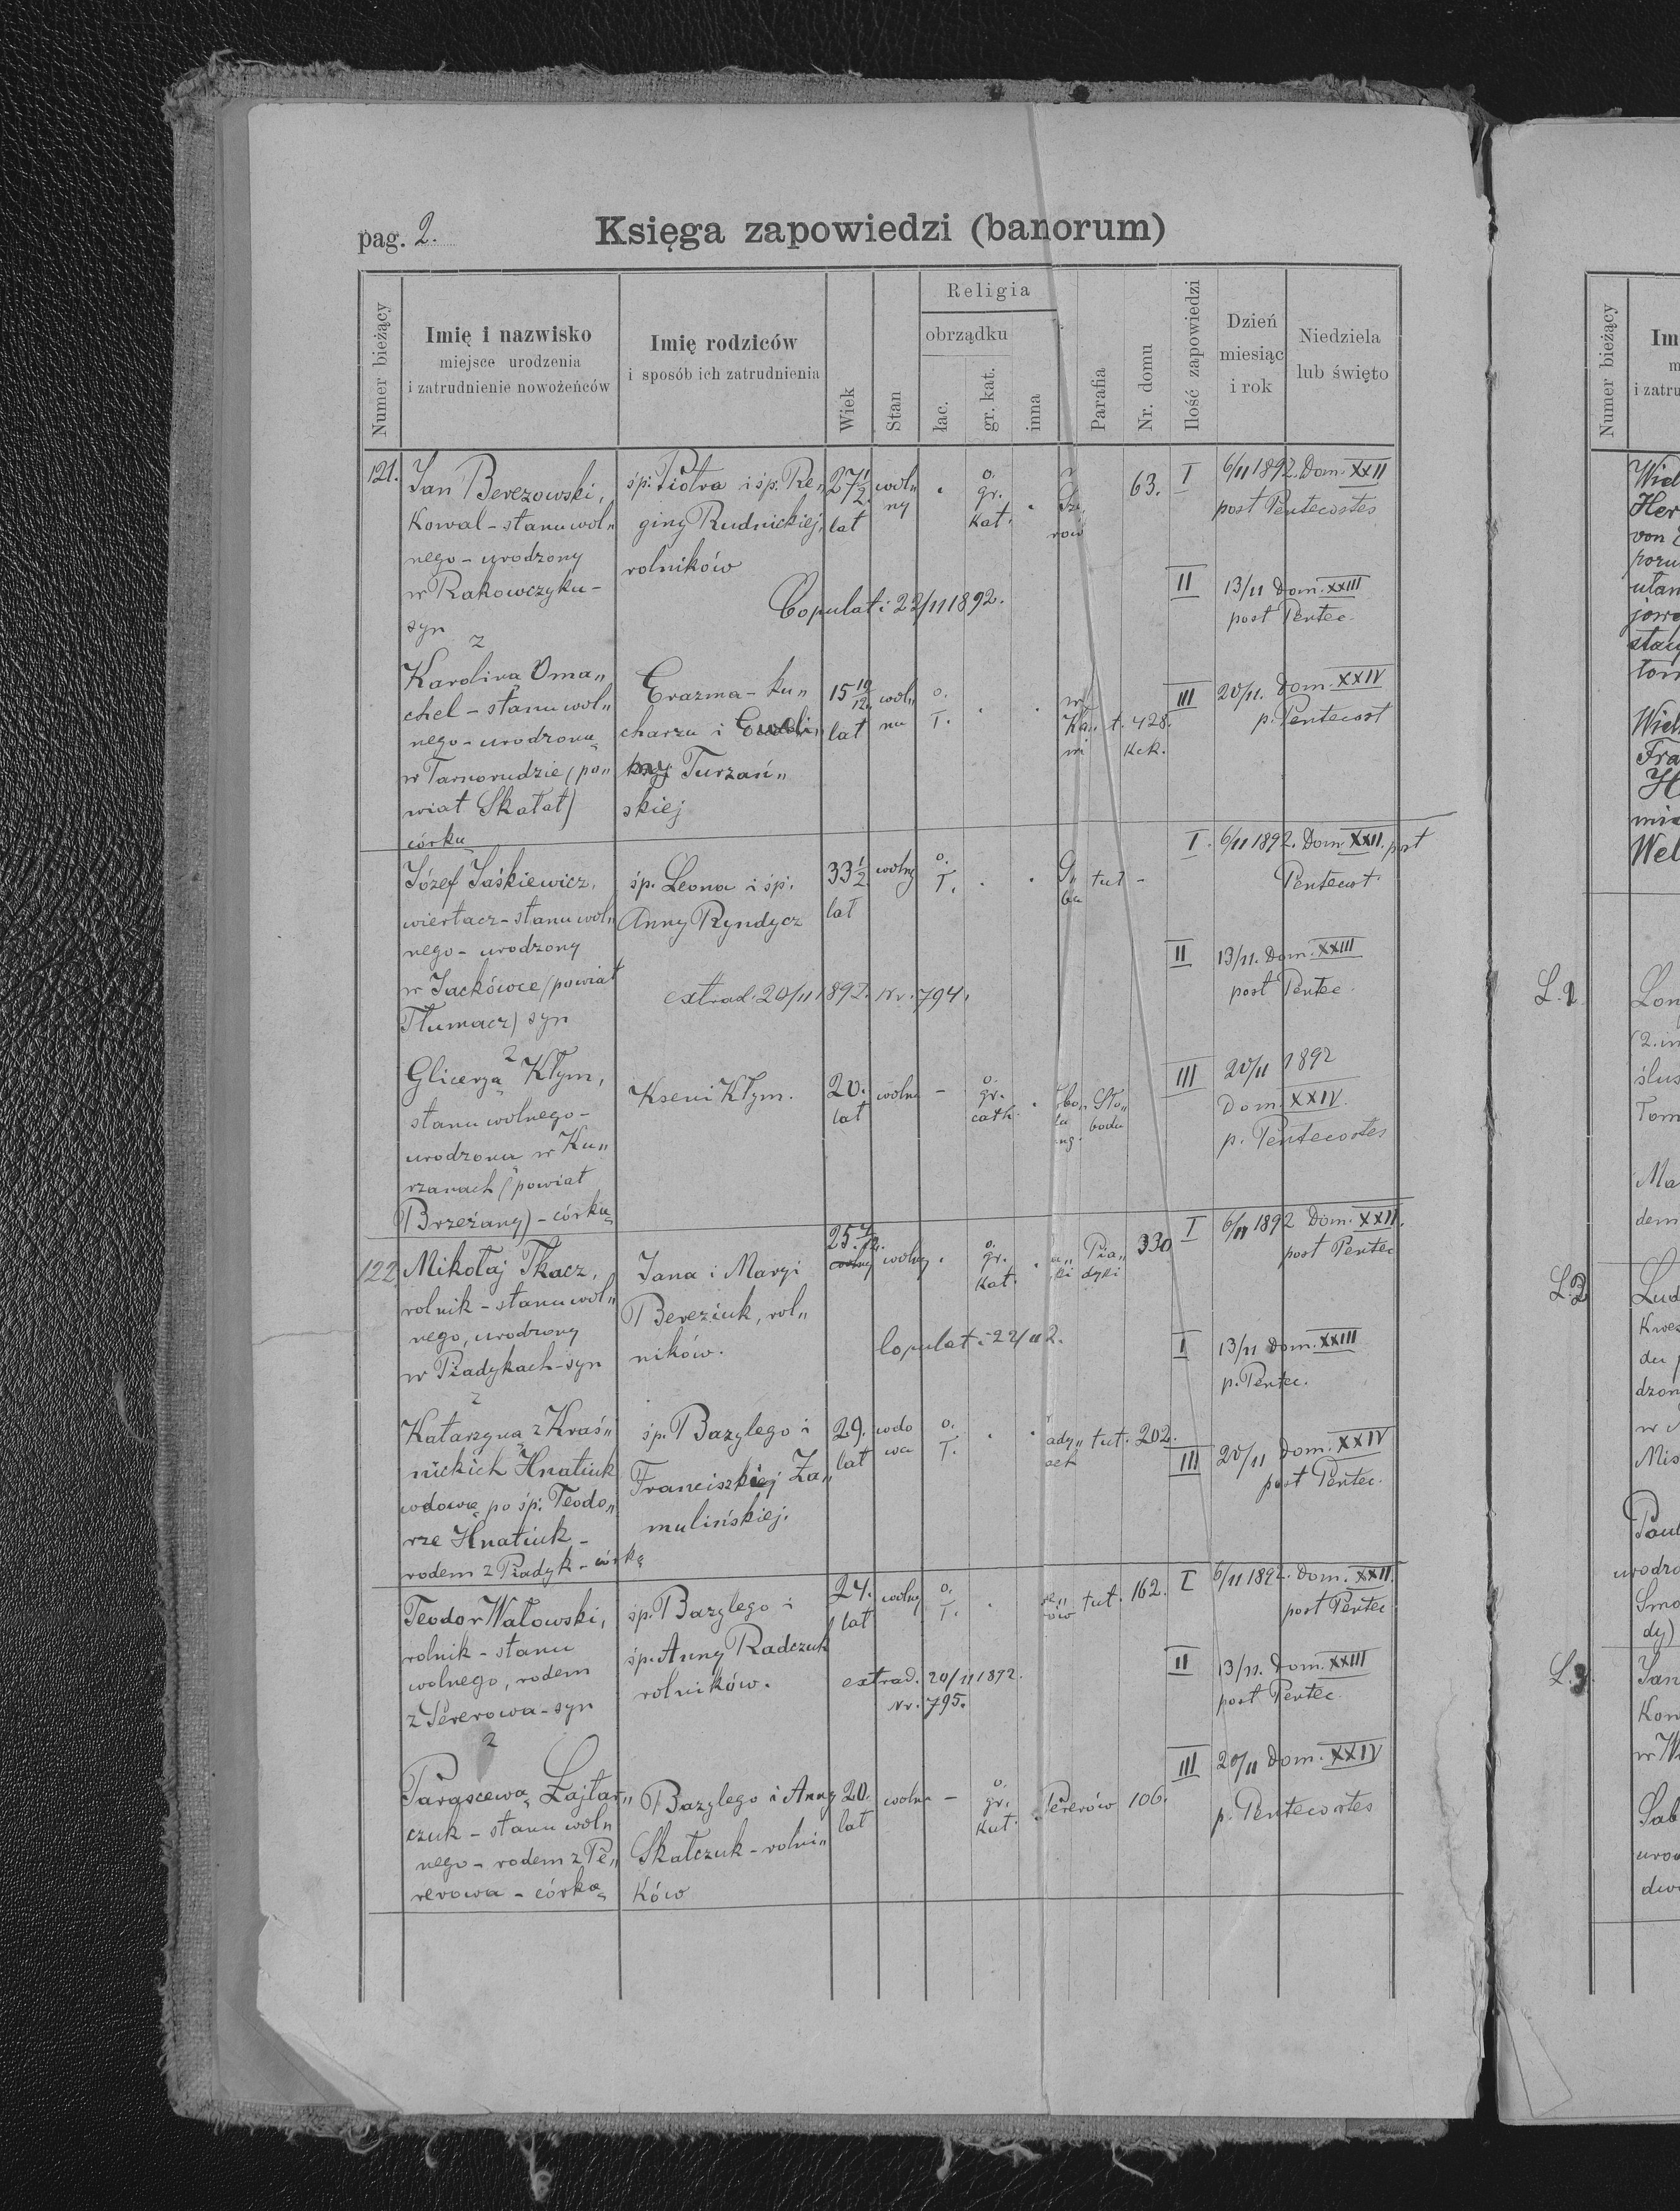 pag. 2.
Księga zapowiedzi (banorum)
Numer bieżący
Imię i nazwisko
miejsce urodzenia
i zatrudnienie nowożeńców
Imię rodziców
i sposób ich zatrudnienia
Wiek
Stan
Religia
obrządku
łac.
gr. kat.
inna
Parafia
Nr. domu
Ilość zapowiedzi
Dzień
miesiąc
i rok
Niedziela
lub święto
121.
Jan Berezowski,
Kowal - stanu wol„
nego - urodzony
w Rakowczyku -
syn
z
śp. Piotra i śp. Re„
giny Rudnickiej,
rolników
27 1/2
lat
wol„
ny
o.
gr.
Kat.
rów
63.
I
6/11 1892. Dom. XXII
post Pentecostes
II
13/11 Dom. XXIII
post Pentec.
Copulati 22/11 1892.
Karolina Oma„
chel - stanu wol„
nego - urodzoną
w Tarnorudzie (po„
wiat Skałat)
córką
Erazma - ku„
charza i
Turzań„
skiej
15 10/12
lat
wol„
na
o.
ł.
t. 428.
Kek.
III
20/11. Dom. XXIV
p. Pentecost
Józef Jaśkiewicz,
wiertacz - stanu wol„
nego - urodzony
w Jackówce (powiat
Tłumacz) syn
z
śp. Leona i śp.
Anny Ryndycz
33 1/2
lat
wolny
o.
ł.
tut -
I.
6/11 1892. Dom. XXII. post
Pentecost.
II
13/11. Dom. XXIII
post Pentec.
extrad. 20/11 1892. Nr. 794.
Glicerzą Kłym,
stanu wolnego -
urodzoną w Ku„
rzanach (powiat
Brzeżany) - córką
Kseni Kłym.
20.
lat
wolna
-
o.
gr.
cath.
Sło„
boda
III
20/11 1892
Dom. XXIV.
p. Pentecostes
122
Mikołaj Tkacz,
rolnik - stanu wol„
nego, urodzony
w Piadykach - syn
z
Jana i Maryi
Bereziuk, rol„
ników.
25
wolny
o.
gr.
Kat.
Pia„
dyki
330
I
6/11 1892 Dom. XXII.
post Pentec
I
13/11 Dom. XXIII
p. Pentec.
Copulati 22/11 2.
Katarzyną z Kraś„
nickich Hnatiuk
wdową po śp. Teodo„
rze Hnatiuk -
rodem z Piadyk - córką
śp. Bazylego i
Franciszkiej Za„
mulińskiej.
29.
lat
wdo
wa
o.
ł.
ady„
ach
tut. 202.
III
20/11 Dom. XXIV
post Pentec.
Teodor Watowski,
rolnik - stanu
wolnego, rodem
z Pererowa - syn
z
śp. Bazylego i
śp. Anny Radczuk
rolników.
24.
lat
wolny
o.
ł.
re„
rów
tut. 162.
I
6/11 1892. Dom. XXII.
post Pentec
II
13/11. Dom. XXIII
post Pentec.
extrad. 20/11 1892.
Nr. 795.
Parascewą Łajtar„
czuk - stanu wol„
nego - rodem z Pe„
rerowa - córką
Bazylego i Anny
Skałczuk - rolni„
ków
20.
lat
wolna
-
o.
gr.
Kat.
Pererów
106.
III
20/11 Dom. XXIV
p. Pentecostes
Numer bieżący
Im
i zatru
Wiel
Her
von
ułan
jow
Wiel
Fra
H
Wel
L. 1
(2. in
ślus
Tom
Ma
dem
L. 2
Lud
Kwe
du
dzon
w
Mis
Paul
urodzo
Smo
dy)
L. 3
Jan
Kow
w W
Sab
uro
dw